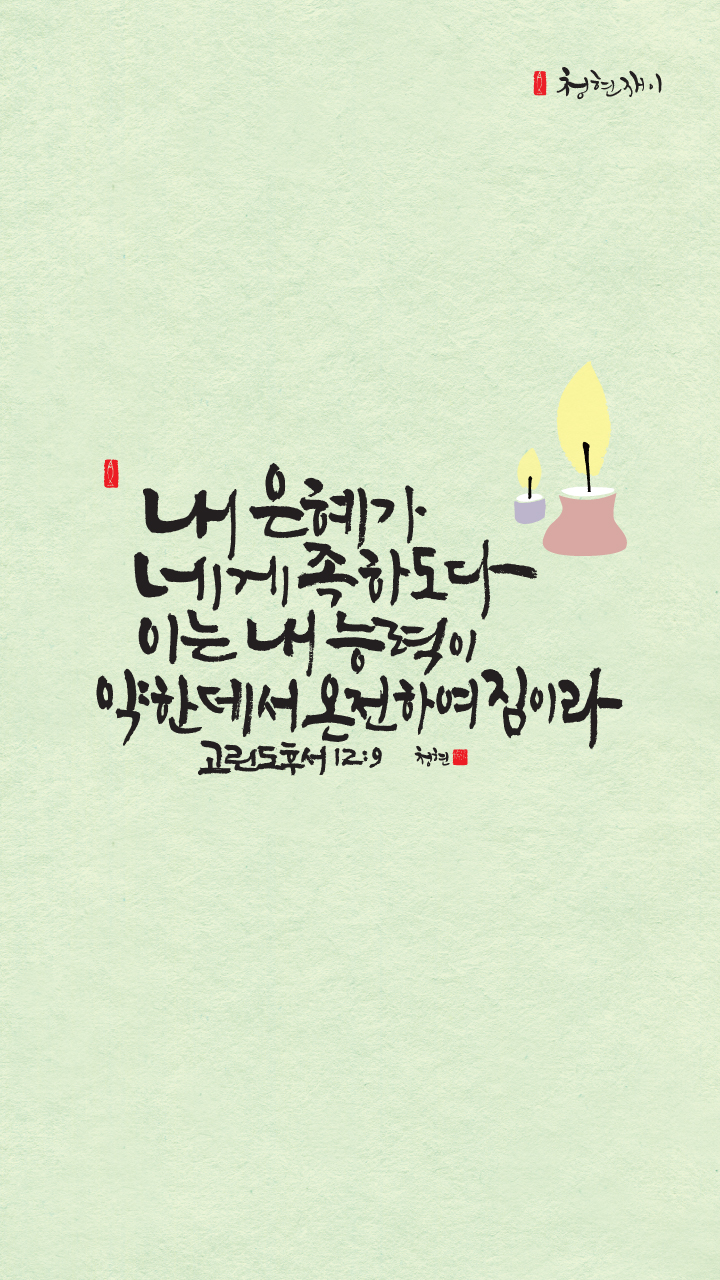 청현재이
내 은혜가
네게 족하도다
이는 내 능력이
약한데서 온전하여짐이라
고린도후서 12:9 청현